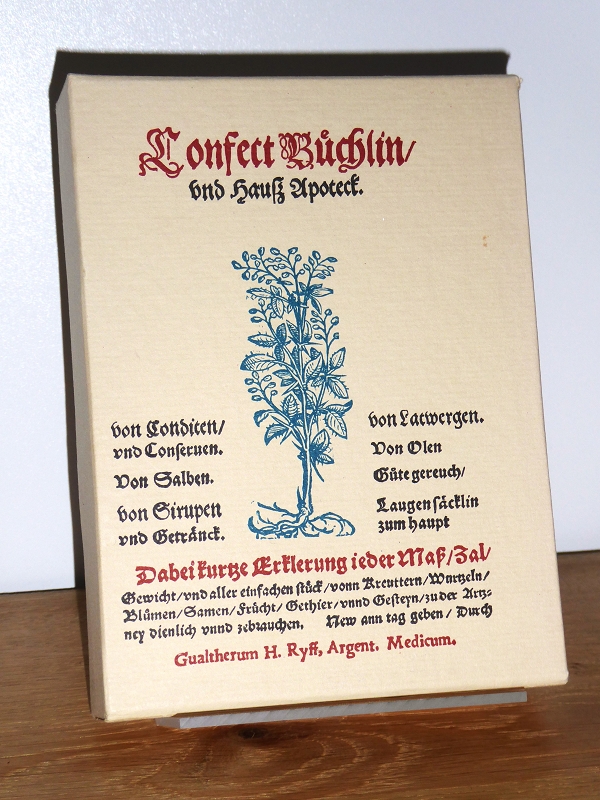 Confect Bůchlin/
vnd Hauß Apoteck.
von Conditen/
vnd Conseruen.
Von Salben.
von Sirupen
vnd Getränck.
von Latwergen.
Von Olen
Gůte gereuch/
Laugen säcklin
zum haupt
Dabei kurtze Erklerung ieder Maß/Zal/
Gewicht/vnd aller einfachen stück/vonn Kreuttern/Wurtzeln/
Blůmen/Samen/Frůcht/Gethier/vnnd Gesteyn/zu der Artz-
ney dienlich vnnd zebrauchen. New ann tag geben/Durch
Gualtherum H. Ryff, Argent. Medicum.